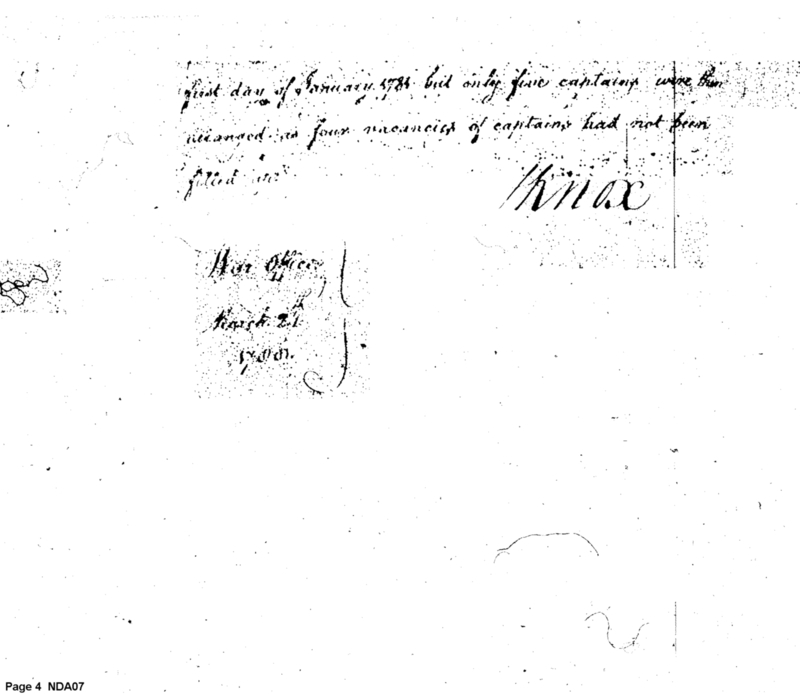 first day of January 1781 but only five captains were then
arranged as four vacancies of captains had not been
filled up
HKnox
War Office
March 21st
1788.
Page 4 NDA07